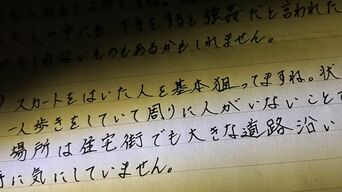 えの中にも、下手をすると強姦だと言われた
しれないものもあるかもしれません。
) スカートをはいた人を基本狙ってますね。状
一人歩きをしていて周りに人がいないことで
場所は住宅街でも大きな道路沿い
に気にしていません。